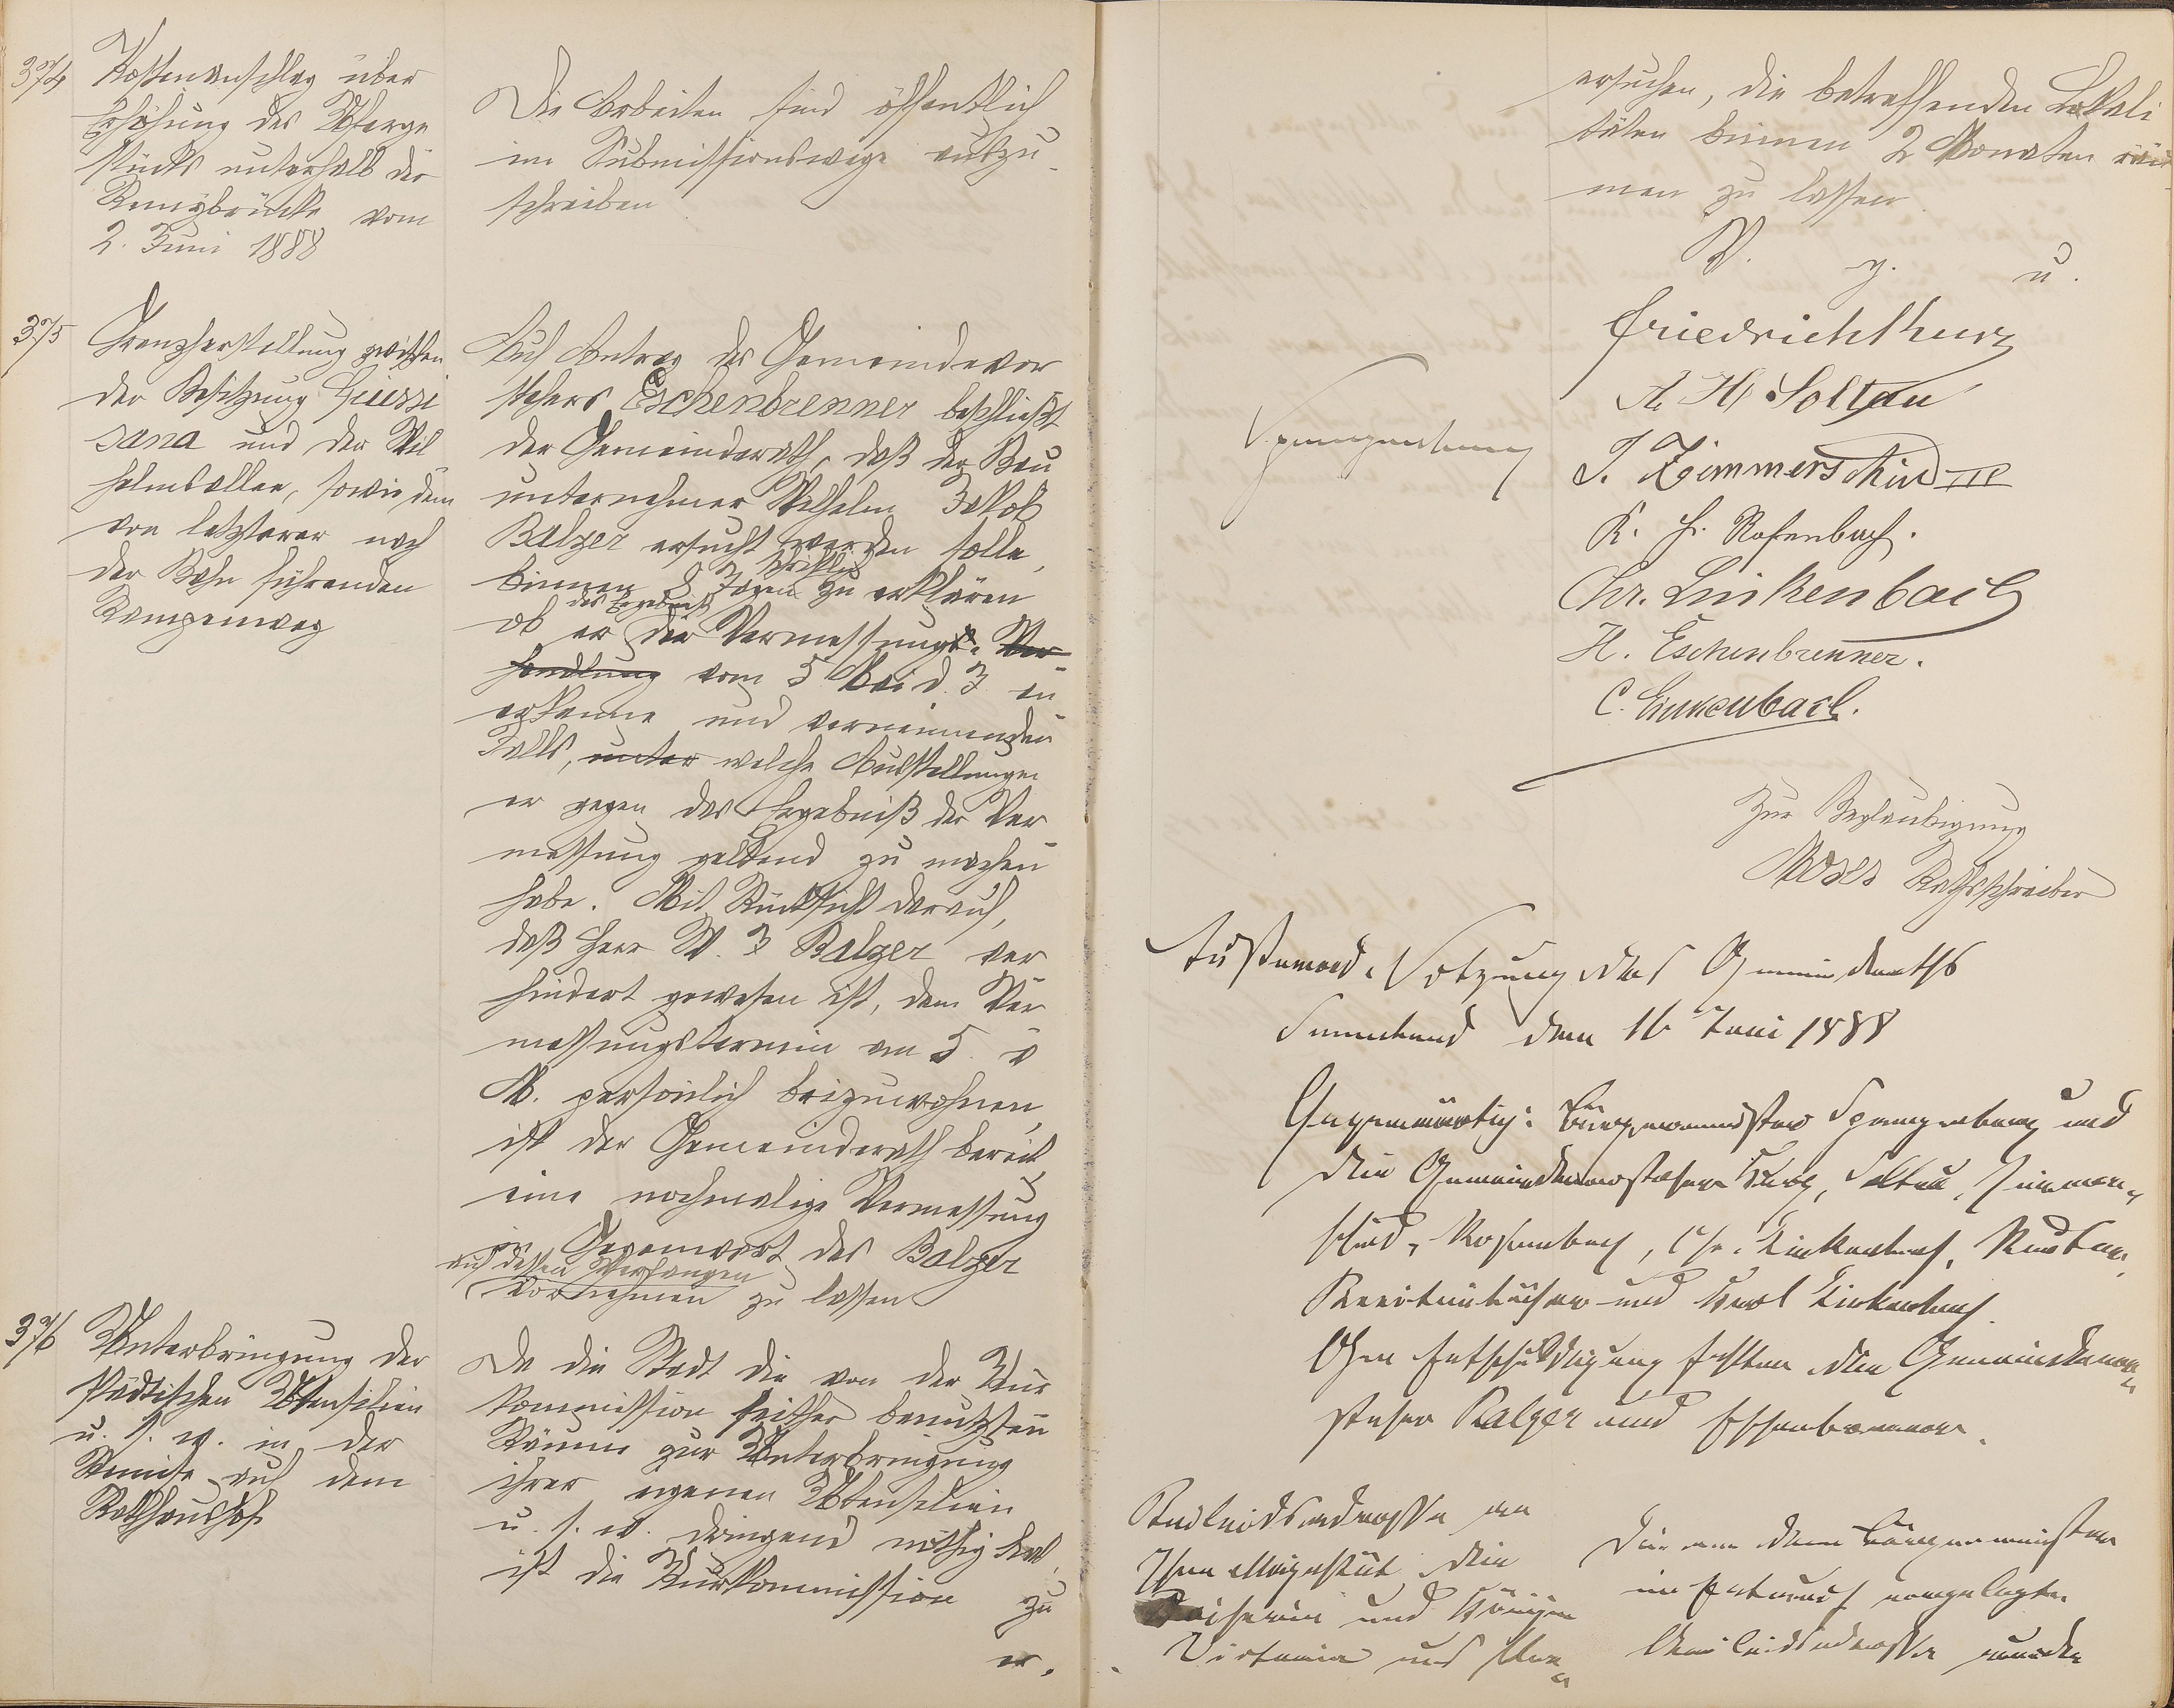 374
Kostenanschlag über
Erhöhung des Uferge
stücks unterhalb der
Remybrücke vom
2. Juni 1888
Die Arbeiten sind öffentlich
im Submissionswege auszu-
schreiben
375
Grenzherstellung zwischen
der Besitzung Quissi
sana und der Wil
helmsallee, sowie dem
von letzterer nach
der Bahn führenden
Rampenweg
Auf Antrag des Gemeindevor
stehers Eschenbrenner beschließt
der Gemeinderath, daß der Bau
unternehmer Wilhelm Jakob
Balzer ersucht werden solle,
schriftlich
binnen 8 Tagen zu erklären
das Ergebniß
ob er die Vermessungs-Ver-
handlung vom 5 Mai d. J. an
erkenne und verneinenden
Falls, unter welche Ausstellungen
er gegen das Ergebniß der Ver
messung geltend zu machen
habe. Mit Rücksicht darauf,
daß Herr W. J Balzer ver
hindert gewesen ist, dem Ver
messungstermin am 5. v
M. persönlich beizuwohnen,
ist der Gemeinderath bereit,
eine nochmalige Vermessung
in Gegenwart des Balzer
auf dessen Verlangen
vornehmen zu lassen
376
Unterbringung der
städtischen Utensilien
u. s. w. in der
Remise auf dem
Rathhaushof
Da die Stadt die von der Kur
kommission seither benutzten
Räume zur Unterbringung
ihrer eigenen Utensilien
u. s. w. dringend nöthig hat,
ist die Kurkommission zu
er.
ersuchen, die betreffenden Lokali
täten binnen 2 Monaten räu
men zu lassen.
V. g. u.
Friedrich Kurz
A. H. Soltau
Spangenberg
J. Zimmerschied III
K. H. Rosenbach.
Chr. Linkenbach
H. Eschenbrenner.
C. Linkenbach.
Zur Beglaubigung
Moses Rathsschreiber
Sitzung des Gemeinderaths
Sonnabend den 16 Juni 1888
Gegenwärtig: Bürgermeister Spangenberg und
die Gemeindevorsteher Kurz, Soltau, Zimmer-
schied, Rosenbach, Chr. Linkenbach,
und Karl Linkenbach.
Ohne Entschuldigung fehlten die Gemeindevor-
steher Balzer und Eschenbrenner.
Beileidsadresse an
Ihre Majestät die
Kaiserin und Königin
Victoria und
Die von dem Bürgermeister
im Entwurf vorgelegte
Beileidsadresse wurde